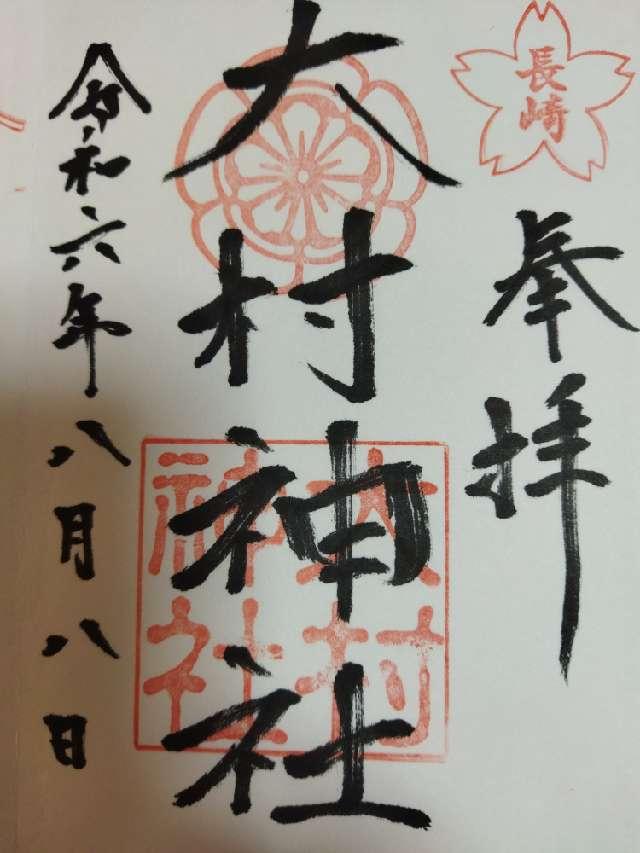 長崎
奉拝
大村神社
大村神社
令和六年八月八日